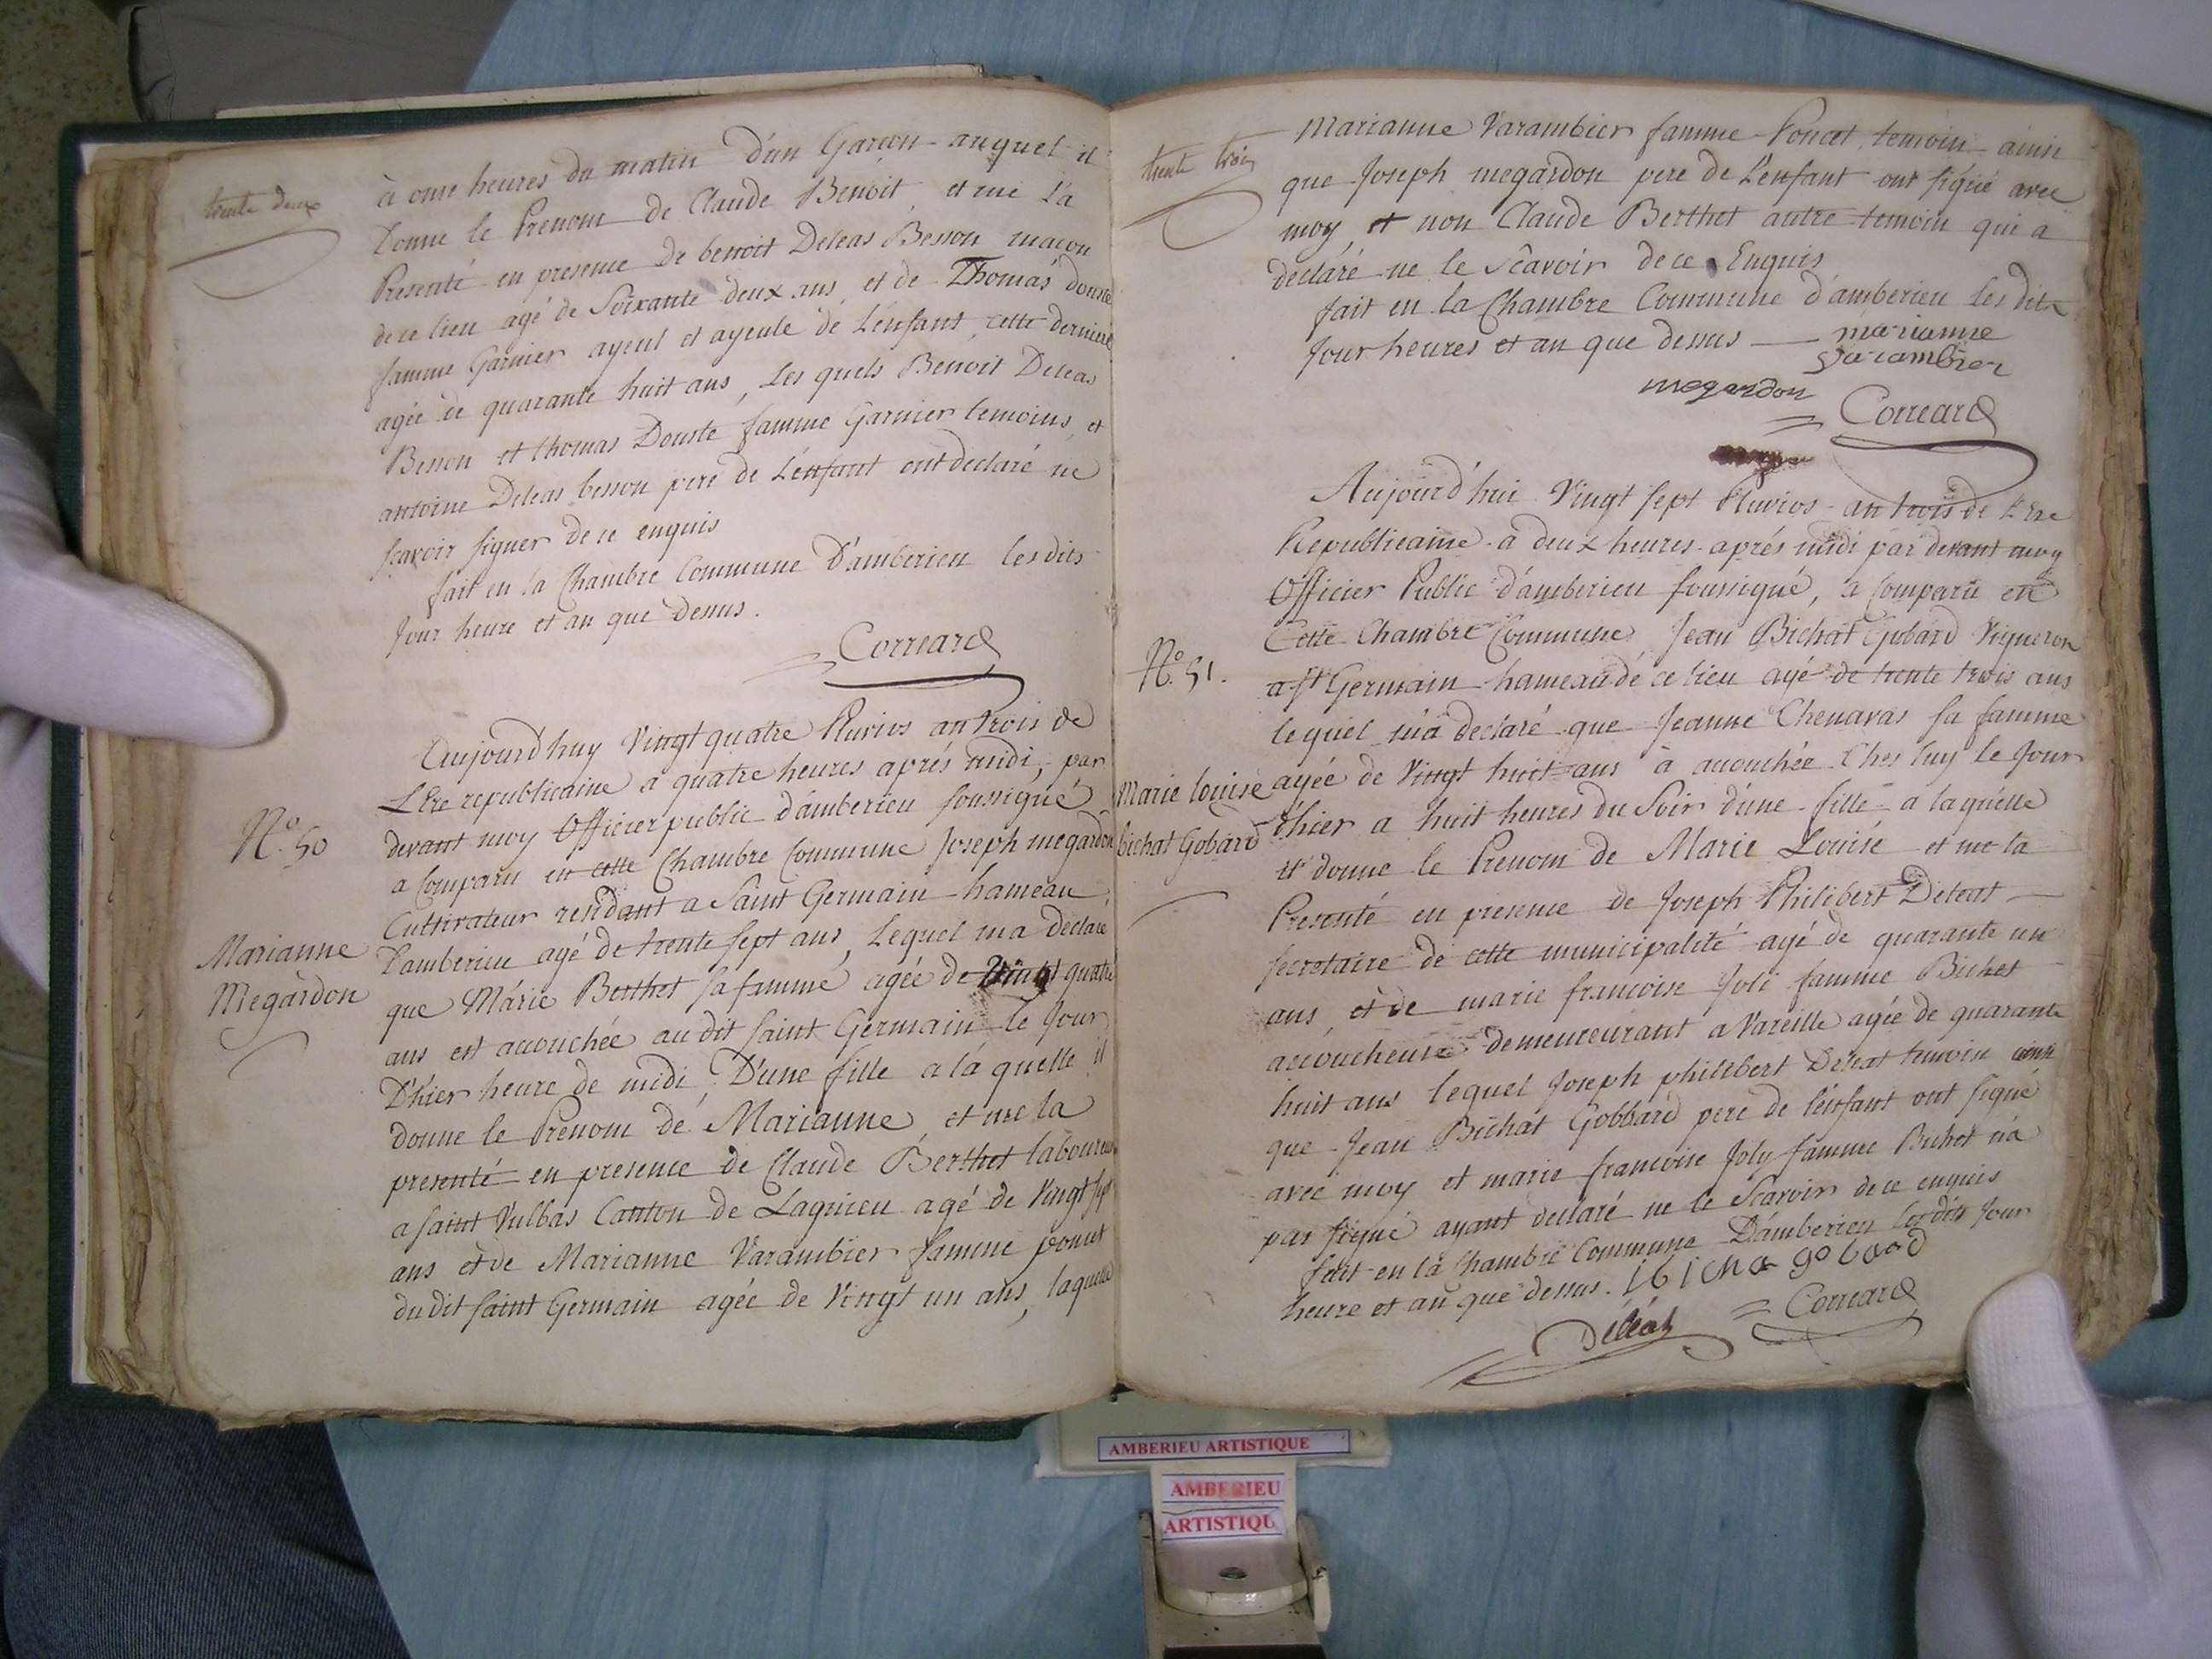 trente deux
à onze heures du matin d'un Garçon auquel il
Donne le Prenom de Claude Benoit, et me l'a
Presenté en presence de benoit Deleas Besson maçon
de ce lieu agé de Soixante deux ans, et de Thomas Douste
famme Garnier ayeul et ayeule de L'enfant, cette derniere
agée de quarante huit ans, Les quels Benoit Deleas
Besson et thomas Douste famme Garnier temoins, et
antoine Deleas besson pere de L'enfant ont declaré ne
scavoir signer de ce enquis
fait en la Chambre Commune D'amberieu les dits
Jour heure et an que dessus.
Correard
N.º 50
Marianne
Megardon
Aujourd'huy Vingt quatre Pluvios an trois de
L'Ere republicaine a quatre heures aprés midi, par
devant moy Officier public d'amberieu soussigné
a Comparu en cette Chambre Commune Joseph megardon
Cultivateur residant a Saint Germain hameau
D'amberieu agé de trente sept ans, Lequel m'a declaré
que Marie Berthet sa famme agée de Vingt quatre
ans est acouchée au dit saint Germain le Jour
D'hier heure de midi, D'une fille a la quelle il
donne le Prenom de Marianne, et me la
presenté en presence de Claude Berthet laboureur
a saint Vulbas Canton de Lagnieu agé de Vingt sept
ans et de Marianne Varambier famme poncet
du dit saint Germain agée de Vingt un ans, laquelle
trente trois
Marianne Varambier famme Poncet temoin ainsi
que Joseph megardon pere de L'enfant ont signé avec
moy, et non Claude Berthet autre temoin qui a
declaré ne le Scavoir de ce Enquis
fait en la Chambre Commune d'amberieu Les dits
Jour heures et an que dessus
marianne
varambier
megardon
Correard
N.º 51.
Marie louise
bichat Gobard
Aujourd'hui Vingt sept Pluvios an trois de L'Ere
Republicaine a deux heures aprés midi par devant moy
Officier Public d'amberieu soussigné, a Comparu en
Cette Chambre Commune Jean Bichat Gobard Vigneron
a St Germain hameau de ce lieu agé de trente trois ans
lequel m'a declaré que Jeanne Chenavas sa famme
agée de Vingt huit ans à acouchée Ches luy le Jour
d'hier a huit heures du Soir d'une fille a laquelle
il donne le Prenom de Marie Louise et me la
Presenté en presence de Joseph Philibert Deleat
secretaire de cette municipalité agé de quarante un
ans, et de marie francoise Joli famme Bichet
acoucheuse demeureurant a Vareille agée de quarante
huit ans lequel Joseph philibert Deleat temoin ainsi
que Jean Bichat Gobbard pere de l'enfant ont signé
avec moy et marie francoise Joly famme Bichet n'a
pas signé ayant declaré ne le Scavoir de ce enquis
fait en la Chambre Commune D'amberieu les dits Jour
heure et an que dessus. ibicha gobard
Deleat
Correard
AMBERIEU ARTISTIQUE
AMBERIEU
ARTISTIQU